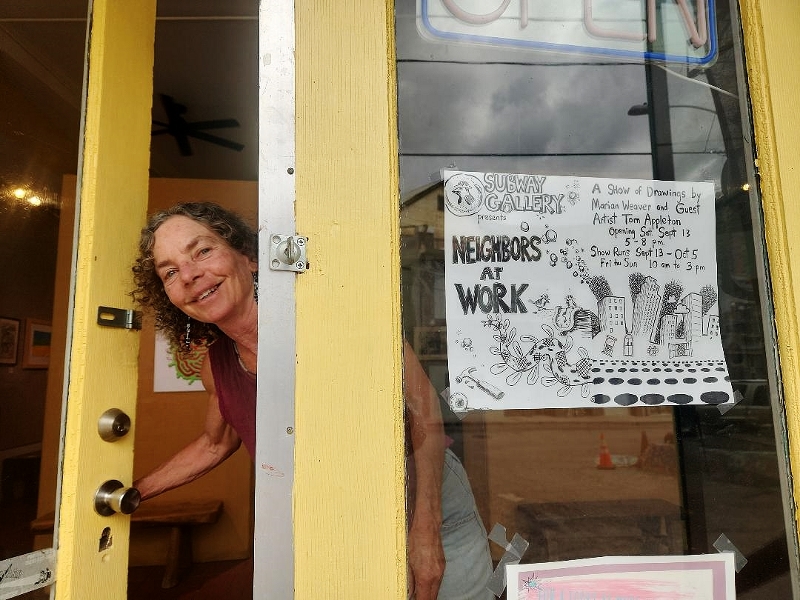 OPEN
SUBWAY
GALLERY
presents
NEIGHBORS
AT
WORK
A Show of Drawings by
Marian Weaver and Guest
Artist Tom Appleton
Opening Sat Sept 13
5-8 pm
Show Runs Sept 13 - Oct 5
Fri to Sun 10 am to 3 pm